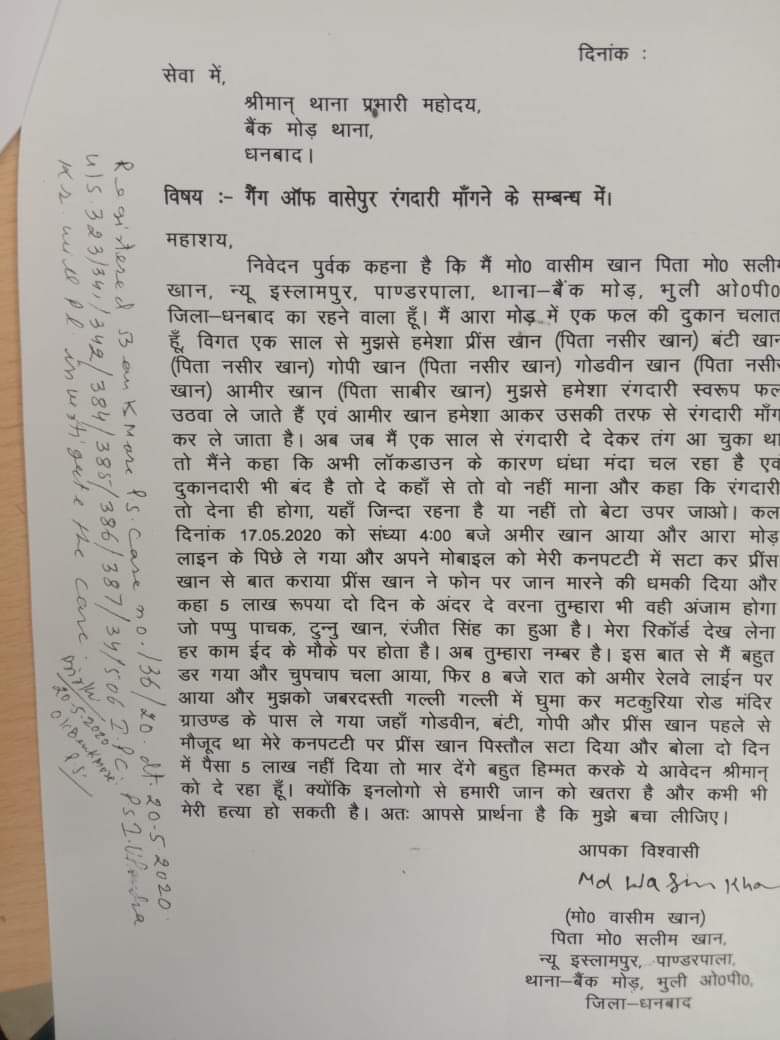 दिनांक :
सेवा में,
श्रीमान् थाना प्रभारी महोदय,
बैंक मोड़ थाना,
धनबाद।
विषय :- गैंग ऑफ वासेपुर रंगदारी माँगने के सम्बन्ध में।
महाशय,
निवेदन पुर्वक कहना है कि मैं मो0 वासीम खान पिता मो0 सलीम
खान, न्यू इस्लामपुर, पाण्डरपाला, थाना–बैंक मोड़, भुली ओ0पी0
जिला–धनबाद का रहने वाला हूँ। मैं आरा मोड़ में एक फल की दुकान चलात
हूँ, विगत एक साल से मुझसे हमेशा प्रींस खान (पिता नसीर खान) बंटी खान
(पिता नसीर खान) गोपी खान (पिता नसीर खान) गोडवीन खान (पिता नसीर
खान) आमीर खान (पिता साबीर खान) मुझसे हमेशा रंगदारी स्वरूप फल
उठवा ले जाते हैं एवं आमीर खान हमेशा आकर उसकी तरफ से रंगदारी माँग
कर ले जाता है। अब जब मैं एक साल से रंगदारी दे देकर तंग आ चुका था
तो मैंने कहा कि अभी लॉकडाउन के कारण धंधा मंदा चल रहा है एवं
दुकानदारी भी बंद है तो दे कहाँ से तो वो नहीं माना और कहा कि रंगदारी
तो देना ही होगा, यहाँ जिन्दा रहना है या नहीं तो बेटा उपर जाओ। कल
दिनांक 17.05.2020 को संध्या 4:00 बजे अमीर खान आया और आरा मोड़
लाइन के पिछे ले गया और अपने मोबाइल को मेरी कनपटटी में सटा कर प्रींस
खान से बात कराया प्रींस खान ने फोन पर जान मारने की धमकी दिया और
कहा 5 लाख रूपया दो दिन के अंदर दे वरना तुम्हारा भी वही अंजाम होगा
जो पप्पु पाचक, टुन्नु खान, रंजीत सिंह का हुआ है। मेरा रिकॉर्ड देख लेना
हर काम ईद के मौके पर होता है। अब तुम्हारा नम्बर है। इस बात से मैं बहुत
डर गया और चुपचाप चला आया, फिर 8 बजे रात को अमीर रेलवे लाईन पर
आया और मुझको जबरदस्ती गल्ली गल्ली में घुमा कर मटकुरिया रोड मंदिर
ग्राउण्ड के पास ले गया जहाँ गोडवीन, बंटी, गोपी और प्रींस खान पहले से
मौजूद था मेरे कनपटटी पर प्रींस खान पिस्तौल सटा दिया और बोला दो दिन
में पैसा 5 लाख नहीं दिया तो मार देंगे बहुत हिम्मत करके ये आवेदन श्रीमान्
को दे रहा हूँ। क्योंकि इनलोगो से हमारी जान को खतरा है और कभी भी
मेरी हत्या हो सकती है। अतः आपसे प्रार्थना है कि मुझे बचा लीजिए।
आपका विश्वासी
Md Wasim Khan
(मो0 वासीम खान)
पिता मो0 सलीम खान,
न्यू इस्लामपुर, पाण्डरपाला,
थाना–बैंक मोड़, भुली ओ0पी0,
जिला–धनबाद
Registered Bank More P.S. Case no. 136/20 dt. 20.5.2020
U/S. 323/341/342/384/385/386/387/34/506 I.P.C. P.S.I.
will pl investigate the case.
20.5.2020
O/C Bank More
P.S.